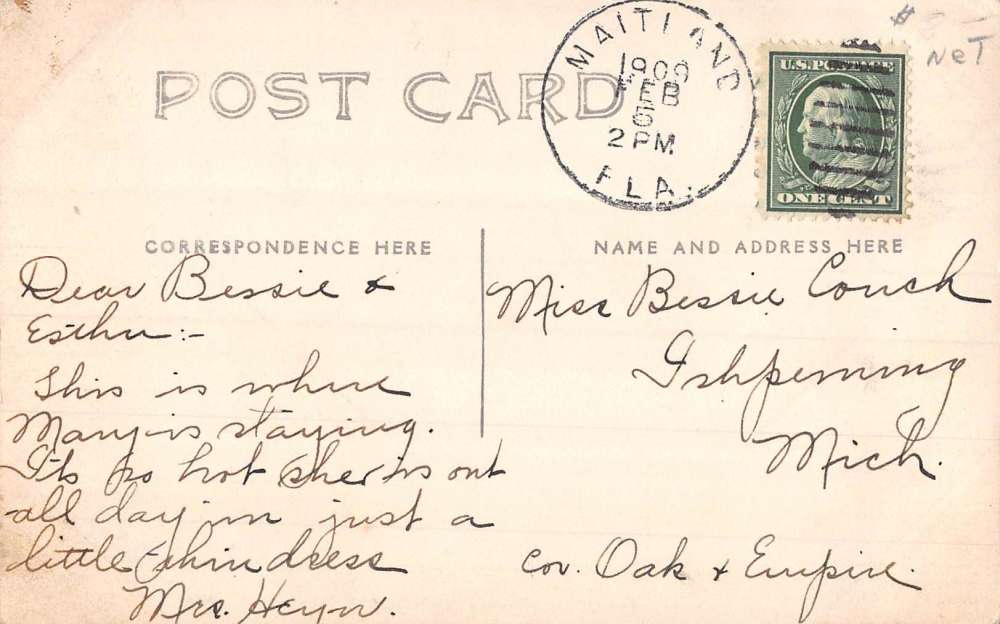 POST CARD
MAITLAND
1909
FEB
5
2 PM
FLA.
U.S. POSTAGE
ONE CENT
NET
CORRESPONDENCE HERE
NAME AND ADDRESS HERE
Dear Bessie &
Esther:-
This is where
Mary is staying.
Its so hot she is out
all day in just a
little thin dress
Mrs. Heyn.
Miss Bessie Couch
Ishpeming
Mich.
Cor. Oak & Empire.